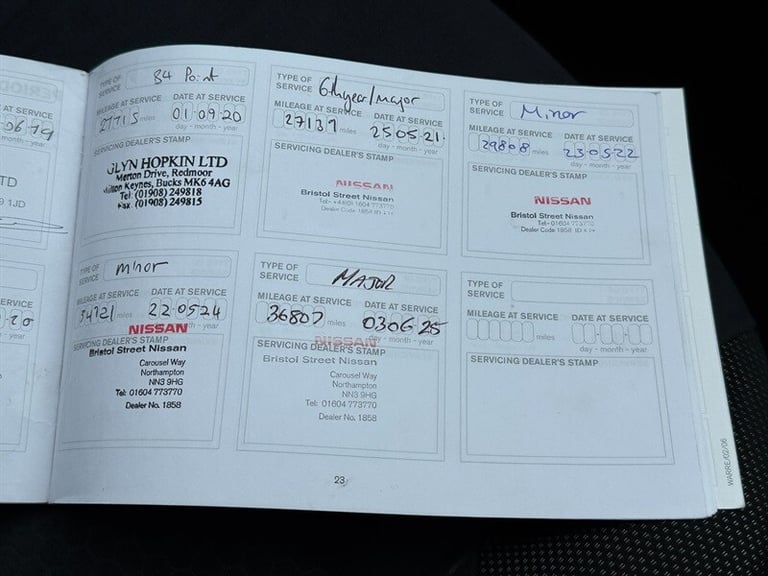 TYPE OF SERVICE 84 Point
MILEAGE AT SERVICE DATE AT SERVICE
27715 miles 01·09·20
day - month - year
SERVICING DEALER'S STAMP
GLYN HOPKIN LTD
Merton Drive, Redmoor
Milton Keynes, Bucks MK6 4AG
Tel: (01908) 249818
Fax: (01908) 249815
TYPE OF SERVICE 6th year/major
MILEAGE AT SERVICE DATE AT SERVICE
27137 miles 25·05·21
day - month - year
SERVICING DEALER'S STAMP
NISSAN
Bristol Street Nissan
Dealer Code 1858
TYPE OF SERVICE Minor
MILEAGE AT SERVICE DATE AT SERVICE
29808 miles 23·05·22
day - month - year
SERVICING DEALER'S STAMP
NISSAN
Bristol Street Nissan
Dealer Code 1858
TYPE OF SERVICE minor
MILEAGE AT SERVICE DATE AT SERVICE
34721 miles 22 05 24
month - year
NISSAN
SERVICING DEALER'S STAMP
Bristol Street Nissan
Carousel Way
Northampton
NN3 9HG
Tel: 01604 773770
Dealer No. 1858
TYPE OF SERVICE MAJOR
MILEAGE AT SERVICE DATE AT SERVICE
36807 miles 03·06·25
day - month - year
NISSAN
SERVICING DEALER'S STAMP
Bristol Street Nissan
Carousel Way
Northampton
NN3 9HG
Tel: 01604 773770
Dealer No. 1858
TYPE OF SERVICE
MILEAGE AT SERVICE DATE AT SERVICE
miles
day - month - year
SERVICING DEALER'S STAMP
23
WARRE/02/06